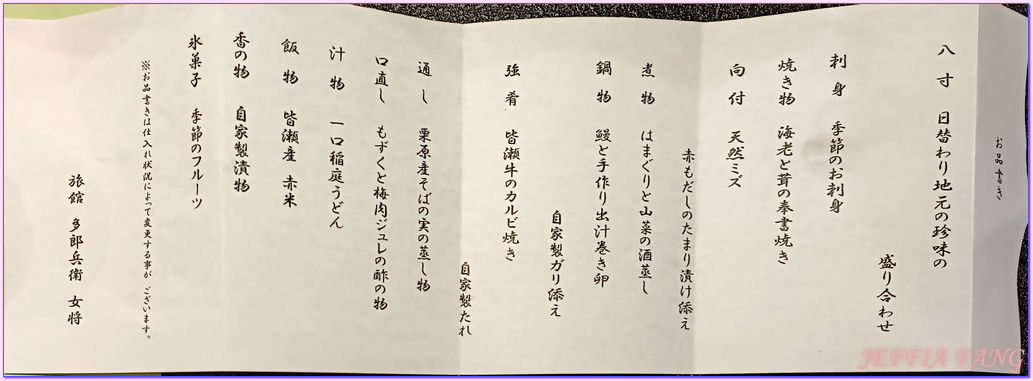 お品書き
八寸 日替わり地元の珍味の
盛り合わせ
刺身 季節のお刺身
焼き物 海老と茸の奉書焼き
向付 天然ミズ
赤もだしのたまり漬け添え
煮物 はまぐりと山菜の酒蒸し
鍋物 鰻と手作り出汁巻き卵
自家製ガリ添え
強肴 皆瀬牛のカルビ焼き
自家製たれ
通し 栗原産そばの実の蒸し物
口直し もずくと梅肉ジュレの酢の物
汁物 一口稲庭うどん
飯物 皆瀬産 赤米
香の物 自家製漬物
氷菓子 季節のフルーツ
※お品書きは仕入れ状況によって変更する事が ございます。
旅館 多郎兵衛 女将
JEFFIA FANG